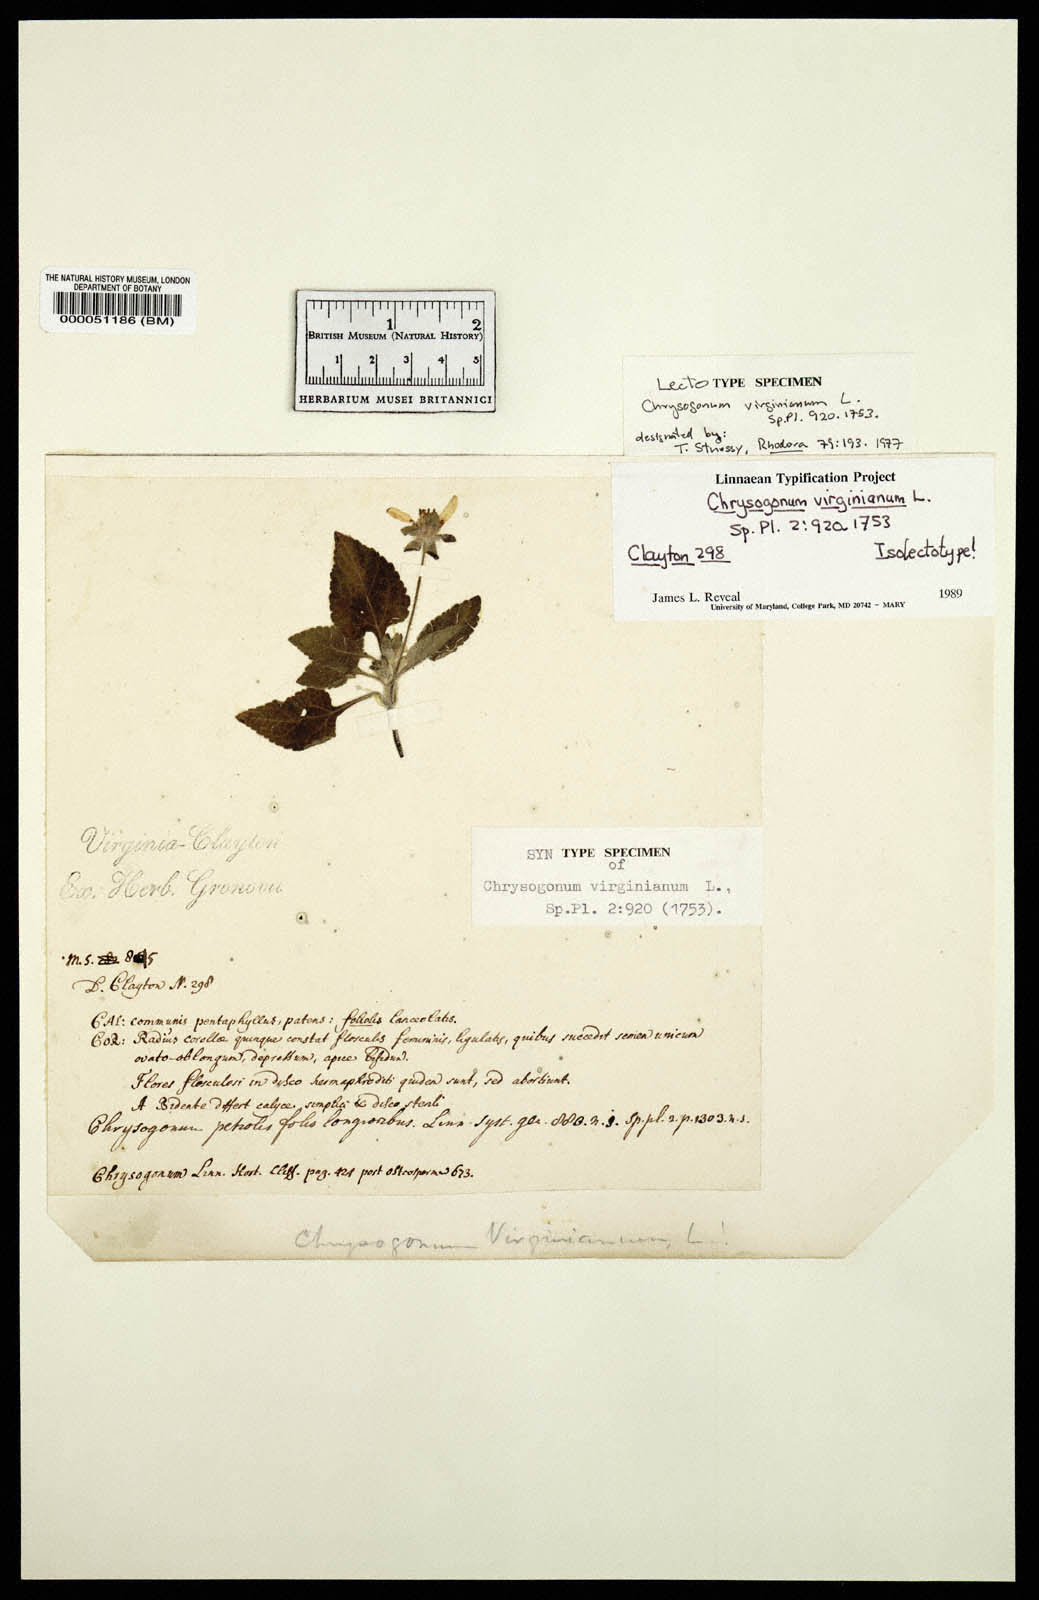 THE NATURAL HISTORY MUSEUM, LONDON
DEPARTMENT OF BOTANY
000051186 (BM)
1 2
BRITISH MUSEUM (NATURAL HISTORY)
1 2 3 4 5
HERBARIUM MUSEI BRITANNICI
Lecto TYPE SPECIMEN
Chrysogonum virginianum L.
Sp.Pl. 920. 1753.
designated by:
T. Stuessy, Rhodora 79:193. 1977
Linnaean Typification Project
Chrysogonum virginianum L.
Sp. Pl. 2:920 1753
Clayton 298 Isolectotype!
James L. Reveal 1989
University of Maryland, College Park, MD 20742 – MARY
Virginia-Clayton
Ex. Herb. Gronovii
SYN TYPE SPECIMEN
of
Chrysogonum virginianum L.,
Sp.Pl. 2:920 (1753).
m.s.
D. Clayton N. 298
CAL: communis pentaphyllus, patens: foliolis lanceolatis.
COR: Radius corollæ quinque constat flosculis femininis, ligulatis, quibus succedit semen unicum
ovato-oblongum, depressum, apice bifidum.
Flores flosculosi in disco hermaphroditi quidem sunt, sed abortiunt.
A Bidente differt calyce simplici & disco sterili
Chrysogonum petiolis foliis longioribus. Linn. Syst. gen. 880. n. 1. Sp. pl. 2. p. 1303. n. 1.
Chrysogonum Linn. Hort. Cliff. pag. 424 post osteosperm. 673.
Chrysogonum Virginianum, L.!